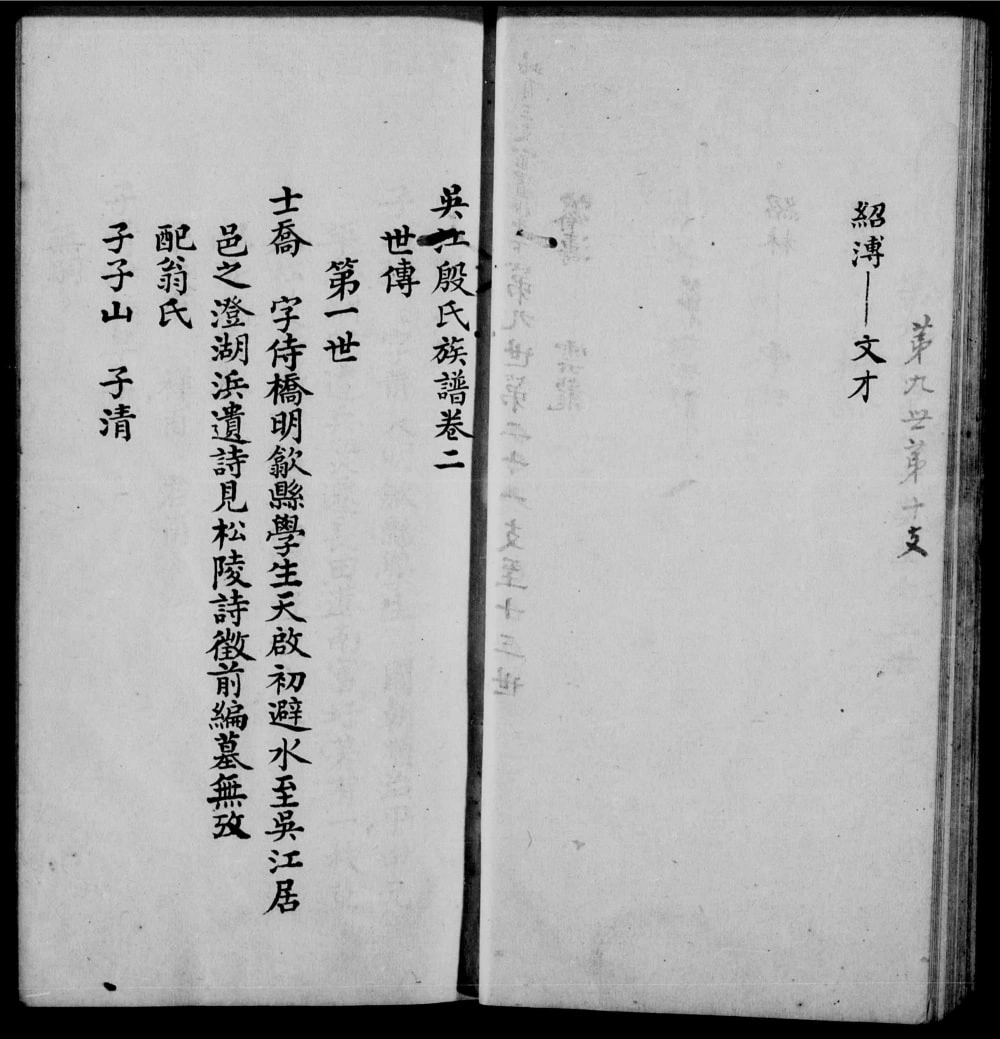 第九世第十支
紹溥—文才
吳江殷氏族譜卷二
世傳
第一世
士喬 字侍橋明歙縣學生天啟初避水至吳江居
邑之澄湖浜遺詩見松陵詩徵前編墓無攷
配翁氏
子子山 子清